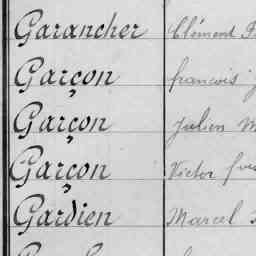 Garancher Clément
Garçon francois
Garçon Julien
Garçon Victor
Gardien Marcel